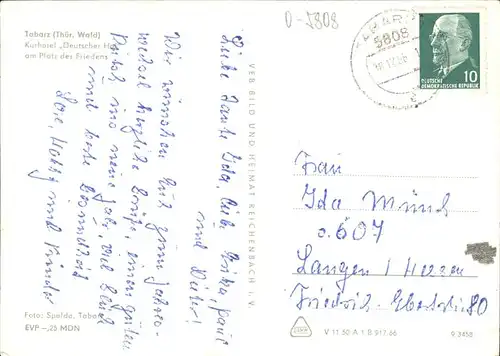 Tabarz (Thür. Wald)
Kurhotel „Deutscher
am Platz des Friedens
0-5808
TABARZ
5808
DEUTSCHE
DEMOKRATISCHE REPUBLIK
10
Liebe Tante Ida, liebe Erika, Paul
und Dieter!
Wir wünschen Euch zum Jahres-
wechsel herzliche Grüße, einen guten
Rutsch ins neue Jahr, viel Glück
und beste Gesundheit
Hobby und Kinder
VEB BILD UND HEIMAT REICHENBACH I. V.
Frau
Ida Münch
o. 607
Langen / Hessen
Friedrich-Ebertstr. 80
Foto: Spalda, Tabarz
EVP -,25 MDN
V 11 50 A 1 B 917/66
9/3458